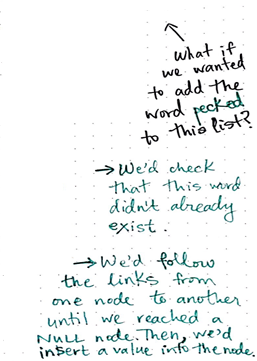 what if
we wanted
to add the
word pecked
to this list?
→ We'd check
that this word
didn't already
exist.
→ We'd follow
the links from
one node to another
until we reached a
NULL node. Then, we'd
insert a value into the node